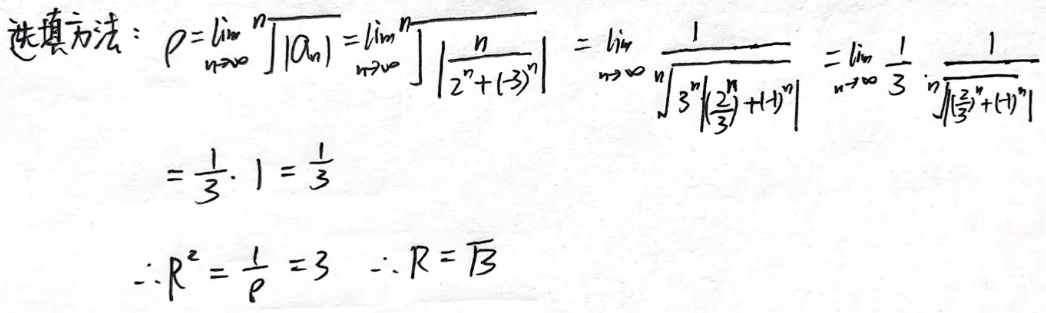 选填方法: ρ = lim_{n→∞} ⁿ√|aₙ| = lim_{n→∞} ⁿ√|n/(2ⁿ+(-3)ⁿ)| = lim_{n→∞} 1/ⁿ√(3ⁿ|(2/3)ⁿ+(-1)ⁿ|) = lim_{n→∞} 1/3 · 1/ⁿ√|(2/3)ⁿ+(-1)ⁿ|
= 1/3 · 1 = 1/3
∴ R² = 1/ρ = 3 ∴ R = √3